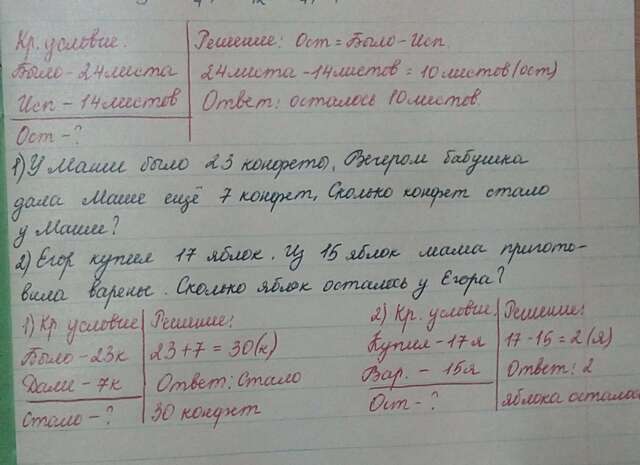 Кр. условие. Решение: Ост = Было - Исп.
Было - 24 листа 24 листа - 14 листов = 10 листов (ост)
Исп - 14 листов Ответ: осталось 10 листов.
Ост - ?
1) У Маши было 23 конфеты, Вечером бабушка
дала Маше ещё 7 конфет, Сколько конфет стало
у Маши?
2) Егор купил 17 яблок. Из 15 яблок мама пригото-
вила варенье. Сколько яблок осталось у Егора?
1) Кр условие Решение:
Было - 23к 23 + 7 = 30 (к)
Дали - 7к Ответ: Стало
Стало - ? 30 конфет
2) Кр. условие. Решение:
Купил - 17я 17 - 15 = 2 (я)
Вар. - 15я Ответ: 2
Ост - ? яблока осталось